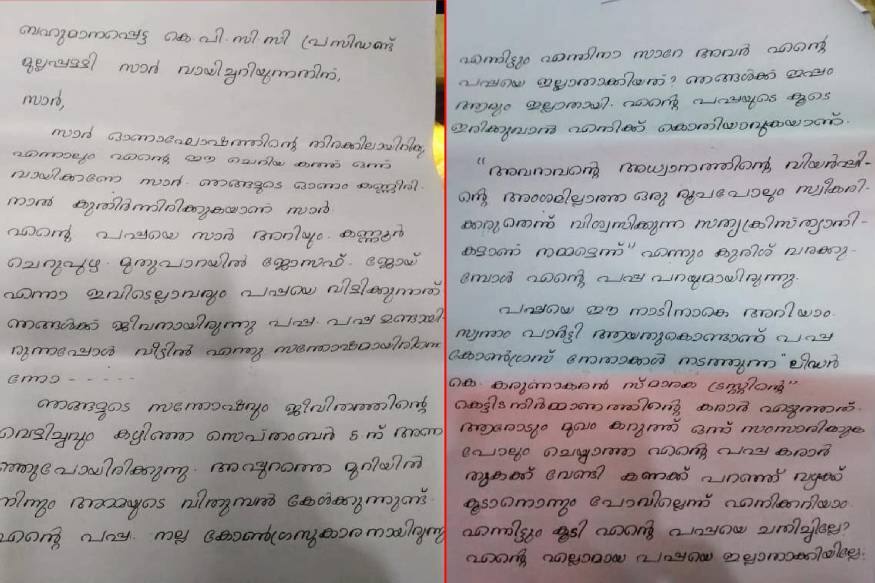 ബഹുമാനപ്പെട്ട കെ.പി.സി.സി പ്രസിഡണ്ട്
മുല്ലപ്പള്ളി സാർ വായിച്ചറിയുന്നതിന്,
സാർ,
സാർ ഓണാഘോഷത്തിന്റെ തിരക്കിലായിരിക്കും
എന്നാലും എന്റെ ഈ ചെറിയ കത്ത് ഒന്ന്
വായിക്കണേ സാർ. ഞങ്ങളുടെ ഓണം കണ്ണീരി-
നാൽ കുതിർന്നിരിക്കുകയാണ് സാർ.
എന്റെ പപ്പയെ സാർ അറിയും. കണ്ണൂർ
ചെറുപുഴ മുതുപാറയിൽ ജോസഫ്. ജോയ്
എന്നാ ഇവിടെല്ലാവരും പപ്പയെ വിളിക്കുന്നത്
ഞങ്ങൾക്ക് ജീവനായിരുന്നു പപ്പ. പപ്പ ഉണ്ടായി
രുന്നപ്പോൾ വീട്ടിൽ എന്തു സന്തോഷമായിരുന്നെ
ന്നോ - - - - -
ഞങ്ങളുടെ സന്തോഷവും ജീവിതത്തിന്റെ
വെളിച്ചവും കഴിഞ്ഞ സെപ്തംബർ 5 ന് അണ
ഞ്ഞുപോയിരിക്കുന്നു. അപ്പുറത്തെ മുറിയിൽ
നിന്നും അമ്മയുടെ വിതുമ്പൽ കേൾക്കുന്നുണ്ട്.
എന്റെ പപ്പ നല്ല കോൺഗ്രസുകാരനായിരുന്നു
എന്നിട്ടും എന്തിനാ സാറേ അവർ എന്റെ
പപ്പയെ ഇല്ലാതാക്കിയത്? ഞങ്ങൾക്ക് ഇപ്പം
ആരും ഇല്ലാതായി. എന്റെ പപ്പയുടെ കൂടെ
ഇരിക്കുവാൻ എനിക്ക് കൊതിയാവുകയാണ്.
"അവനവന്റെ അധ്വാനത്തിന്റെ വിയർപ്പി-
ന്റെ അംശമില്ലാത്ത ഒരു രൂപപോലും സ്വീകരി-
ക്കരുതെന്ന് വിശ്വസിക്കുന്ന സത്യക്രിസ്ത്യാനി-
കളാണ് നമ്മളെന്ന്" എന്നും കുരിശ് വരക്കു-
മ്പോൾ എന്റെ പപ്പ പറയുമായിരുന്നു.
പപ്പയെ ഈ നാടിനാകെ അറിയാം.
സ്വന്തം പാർട്ടി ആയതുകൊണ്ടാണ് പപ്പ
കോൺഗ്രസ് നേതാക്കൾ നടത്തുന്ന "ലീഡർ
കെ. കരുണാകരൻ സ്മാരക ട്രസ്റ്റിന്റെ"
കെട്ടിടനിർമ്മാണത്തിന്റെ കരാർ എടുത്തത്.
ആരോടും മുഖം കറുത്ത് ഒന്ന് സംസാരിക്കുക
പോലും ചെയ്യാത്ത എന്റെ പപ്പ കരാർ
തുകക്ക് വേണ്ടി കണക്ക് പറഞ്ഞ് വഴക്ക്
കൂടാനൊന്നും പോവില്ലെന്ന് എനിക്കറിയാം
എന്നിട്ടും കൂടി എന്റെ പപ്പയെ ചതിച്ചില്ലേ?
എന്റെ എല്ലാമായ പപ്പയെ ഇല്ലാതാക്കിയില്ലേ.